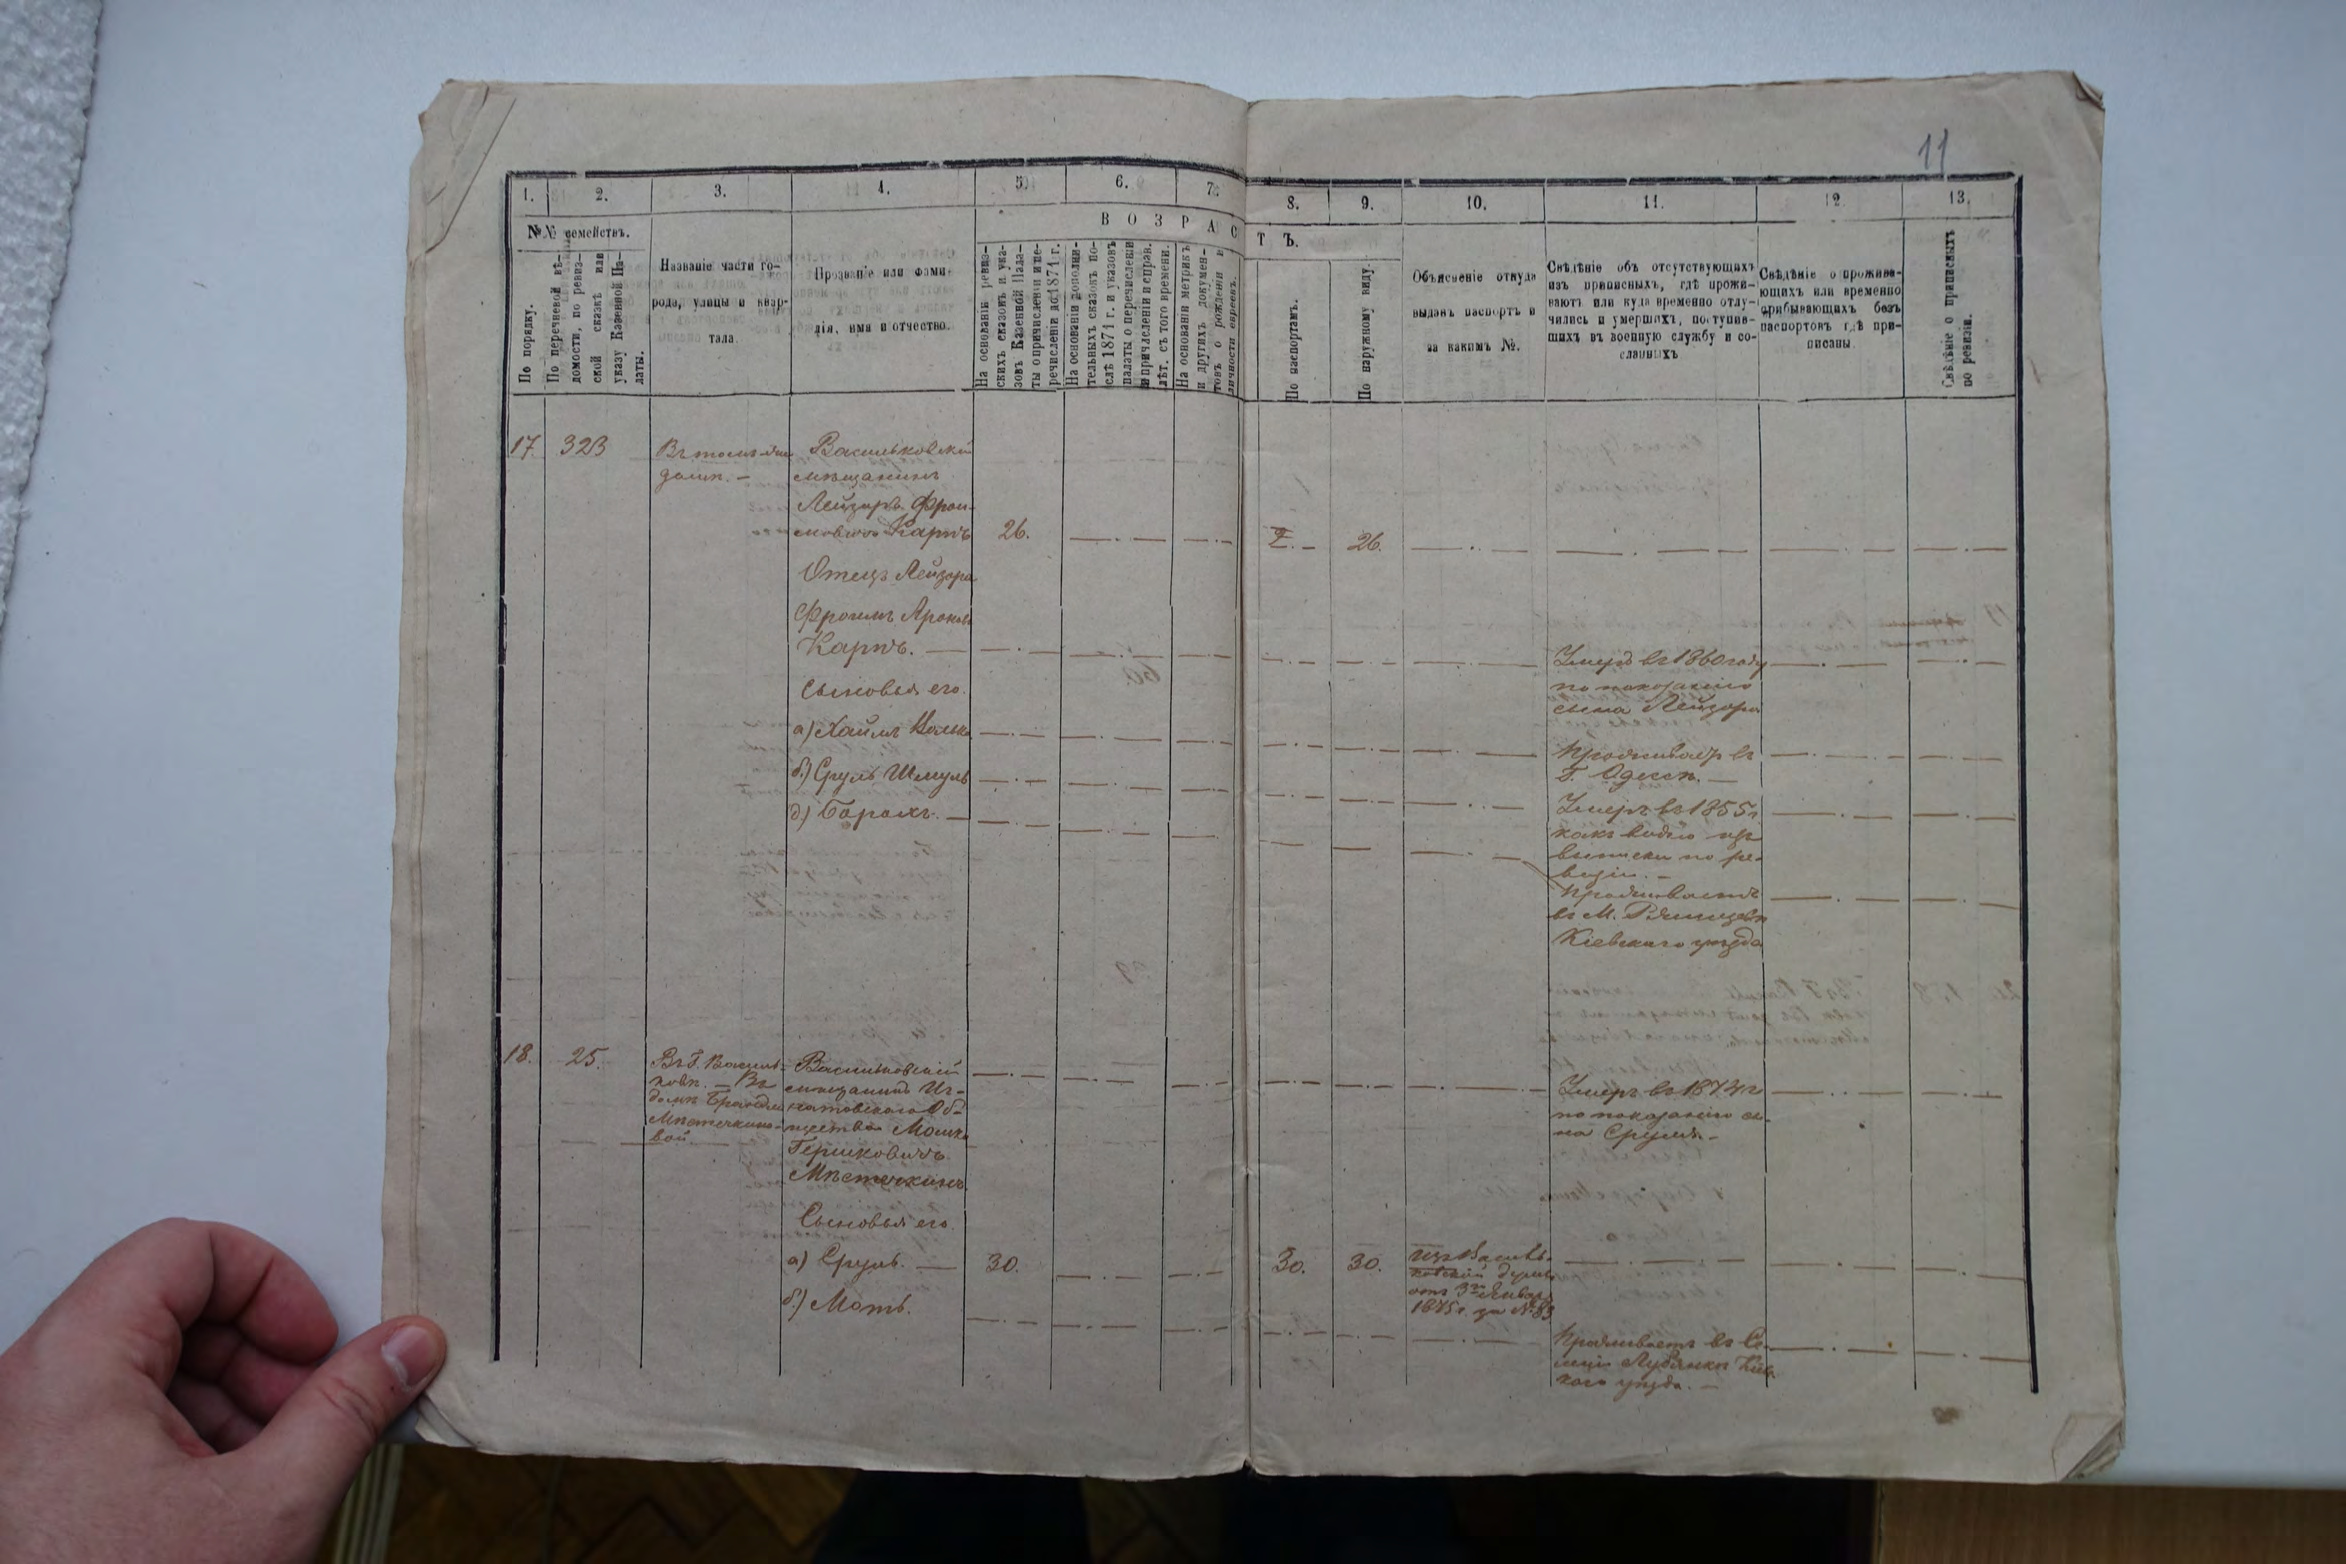 11
1. 2. 3. 4. 5. 6. 7. 8. 9. 10. 11. 12. 13.
№№ семействъ.
В О З Р А С Т Ъ.
По порядку.
По перечневой вѣ-
домости, по ревиз-
ской сказкѣ или
указу Казенной Па-
латы.
Названіе части го-
рода, улицы и квар-
тала.
Прозваніе или фами-
лія, имя и отчество.
На основаніи ревиз-
скихъ сказокъ и ука-
зовъ Казенной Пала-
ты о причисленіи и пе-
речисленіи до 1871 г.
На основаніи дополни-
тельныхъ сказокъ по-
слѣ 1871 г. и указовъ
палаты о перечисленіи
и причисленіи и справ.
лѣт. съ того времени.
На основаніи метрикъ
и другихъ докумен-
товъ о рожденіи и
личности евреевъ.
По паспортамъ.
По наружному виду.
Объясненіе откуда
выданъ паспортъ и
за какимъ №.
Свѣдѣніе объ отсутствующихъ
изъ приписныхъ, гдѣ прожи-
ваютъ или куда временно отлу-
чились и умершихъ, поступив-
шихъ въ военную службу и со-
сланныхъ
Свѣдѣніе о прожива-
ющихъ или временно
прибывающихъ безъ
паспортовъ гдѣ при-
писаны.
Свѣдѣніе о приписныхъ
по ревизіи.
17. 323 Въ томъ же
домѣ. —
Васильковскій
мѣщанинъ
Лейзоръ Фрои-
мовичъ Карпъ 26. 26.
Отецъ Лейзора
ФроимъАроновъ
Карпъ. —
Умеръ въ 1860 году
по показанію
сына Лейзора
Сыновья его.
а) Хаимъ Волько
Проживаетъ въ
Г. Одессѣ. —
б) Сруль Шмуль
Умеръ въ 1855 г
какъ видно изъ
выписки по ре-
визіи. —
д) Борохъ. —
Проживаетъ
въ М. Ржищевѣ
Кіевскаго уѣзда
18. 25. Въ Г. Василь-
ковѣ. — Въ
домѣ
Мѣстечкино-
вой
Васильковскій
мѣщанинъ Иг-
натовскаго Об-
щества Мошко
Гершковичъ
Мѣстечкинъ
Умеръ въ 1874 г
по показанію сы-
на Сруля. —
Сыновья его.
а) Сруль. — 30. 30. 30.
изъ Василь-
ковской думы
отъ 3го Январ
1875 г. за № 83
б) Мотъ.
Проживаетъ въ Се-
леніи Лубянкѣ Кіев
каго уѣзда. —